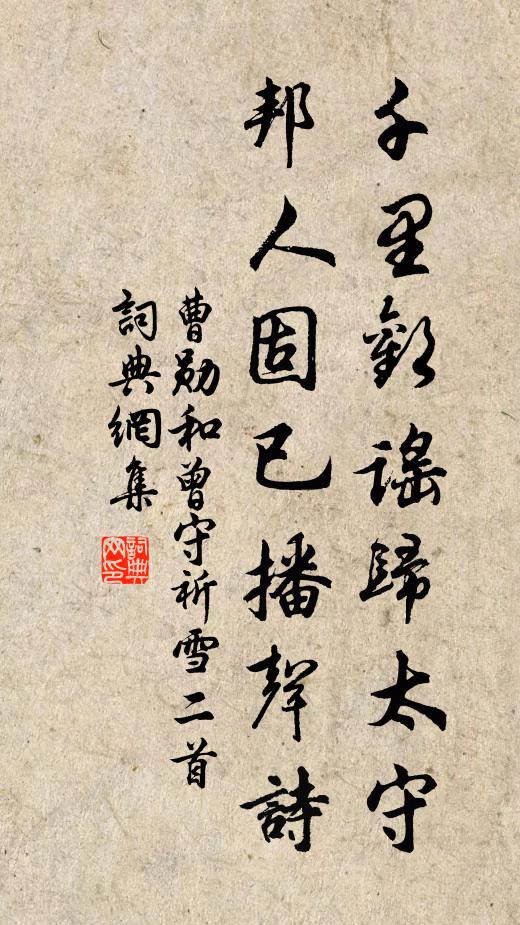 千里歡謠歸太守
邦人固已播聲詩
曹勛和曾守祈雪二首
詞典網集
詞典網印